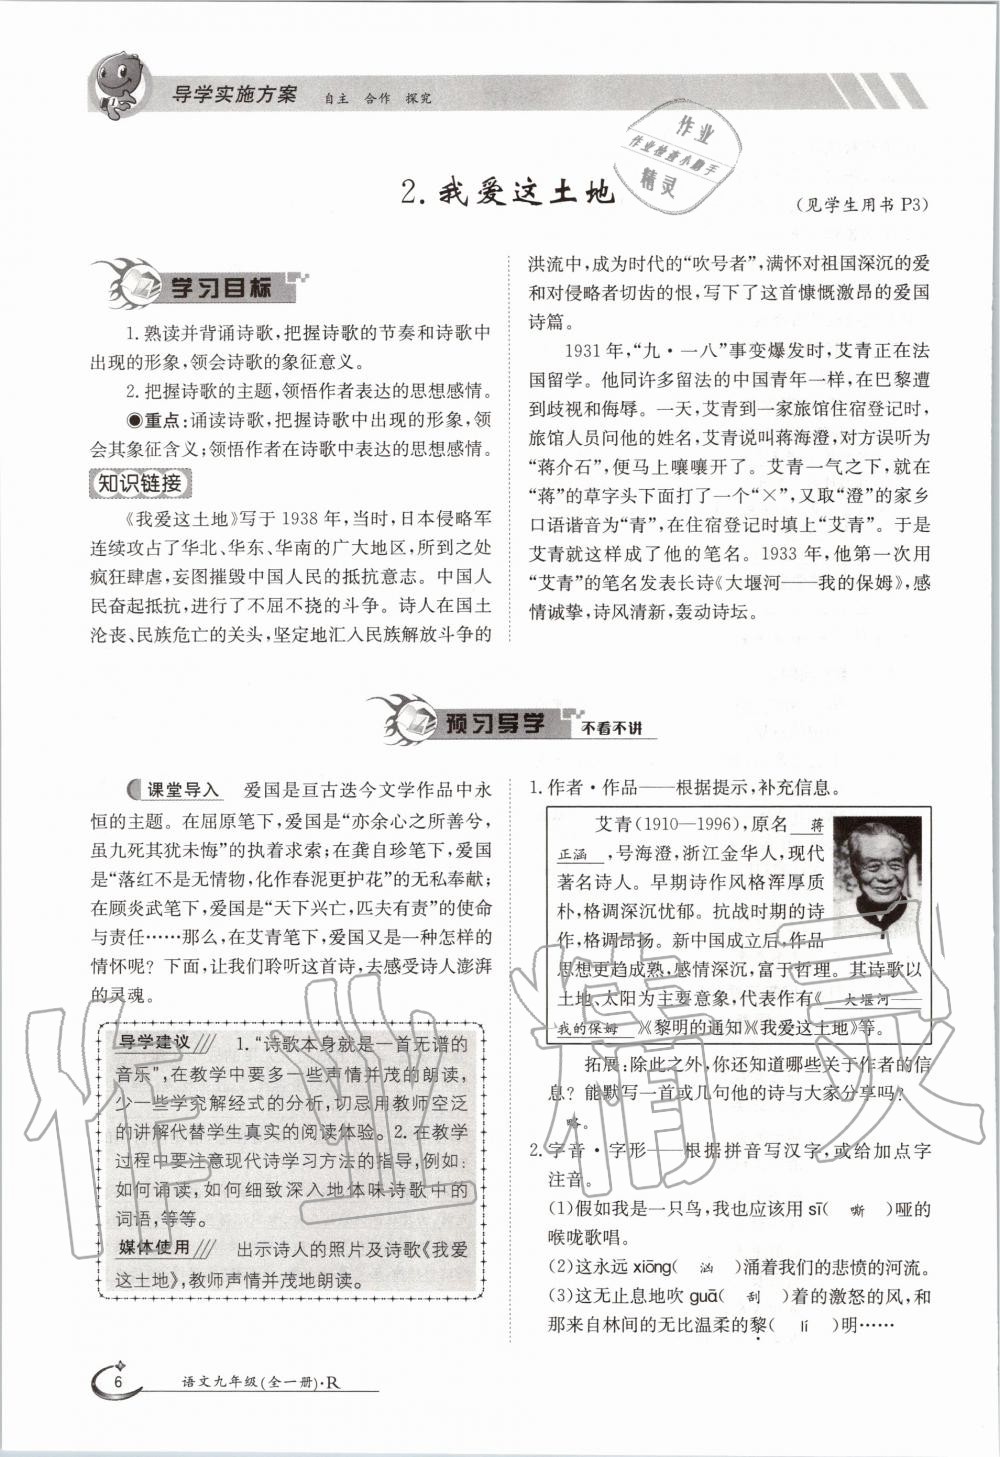 导学实施方案 自主 合作 探究
作业
作业检查小助手
精灵
2.我爱这土地
(见学生用书 P3)
学习目标
1.熟读并背诵诗歌,把握诗歌的节奏和诗歌中
出现的形象,领会诗歌的象征意义。
2.把握诗歌的主题,领悟作者表达的思想感情。
◉重点:诵读诗歌,把握诗歌中出现的形象,领
会其象征含义;领悟作者在诗歌中表达的思想感情。
知识链接
《我爱这土地》写于 1938 年,当时,日本侵略军
连续攻占了华北、华东、华南的广大地区,所到之处
疯狂肆虐,妄图摧毁中国人民的抵抗意志。中国人
民奋起抵抗,进行了不屈不挠的斗争。诗人在国土
沦丧、民族危亡的关头,坚定地汇入民族解放斗争的
洪流中,成为时代的“吹号者”,满怀对祖国深沉的爱
和对侵略者切齿的恨,写下了这首慷慨激昂的爱国
诗篇。
1931 年,“九·一八”事变爆发时,艾青正在法
国留学。他同许多留法的中国青年一样,在巴黎遭
到歧视和侮辱。一天,艾青到一家旅馆住宿登记时,
旅馆人员问他的姓名,艾青说叫蒋海澄,对方误听为
“蒋介石”,便马上嚷嚷开了。艾青一气之下,就在
“蒋”的草字头下面打了一个“×”,又取“澄”的家乡
口语谐音为“青”,在住宿登记时填上“艾青”。于是
艾青就这样成了他的笔名。1933 年,他第一次用
“艾青”的笔名发表长诗《大堰河——我的保姆》,感
情诚挚,诗风清新,轰动诗坛。
预习导学 不看不讲
课堂导入 爱国是亘古迭今文学作品中永
恒的主题。在屈原笔下,爱国是“亦余心之所善兮,
虽九死其犹未悔”的执着求索;在龚自珍笔下,爱国
是“落红不是无情物,化作春泥更护花”的无私奉献;
在顾炎武笔下,爱国是“天下兴亡,匹夫有责”的使命
与责任……那么,在艾青笔下,爱国又是一种怎样的
情怀呢?下面,让我们聆听这首诗,去感受诗人澎湃
的灵魂。
导学建议 1.“诗歌本身就是一首无谱的
音乐”,在教学中要多一些声情并茂的朗读,
少一些学究解经式的分析,切忌用教师空泛
的讲解代替学生真实的阅读体验。2.在教学
过程中要注意现代诗学习方法的指导,例如:
如何诵读,如何细致深入地体味诗歌中的
词语,等等。
媒体使用 出示诗人的照片及诗歌《我爱
这土地》,教师声情并茂地朗读。
1.作者·作品——根据提示,补充信息。
艾青(1910—1996),原名 蒋
正涵 ,号海澄,浙江金华人,现代
著名诗人。早期诗作风格浑厚质
朴,格调深沉忧郁。抗战时期的诗
作,格调昂扬。新中国成立后,作品
思想更趋成熟,感情深沉,富于哲理。其诗歌以
土地、太阳为主要意象,代表作有《 大堰河——
我的保姆 》《黎明的通知》《我爱这土地》等。
拓展:除此之外,你还知道哪些关于作者的信
息?能默写一首或几句他的诗与大家分享吗?
略。
2.字音·字形——根据拼音写汉字,或给加点字
注音。
(1)假如我是一只鸟,我也应该用 sī( 嘶 )哑的
喉咙歌唱。
(2)这永远 xiōng( 汹 )涌着我们的悲愤的河流。
(3)这无止息地吹 guā( 刮 )着的激怒的风,和
那来自林间的无比温柔的黎( lí )明……
作业精灵
6 语文九年级(全一册)·R